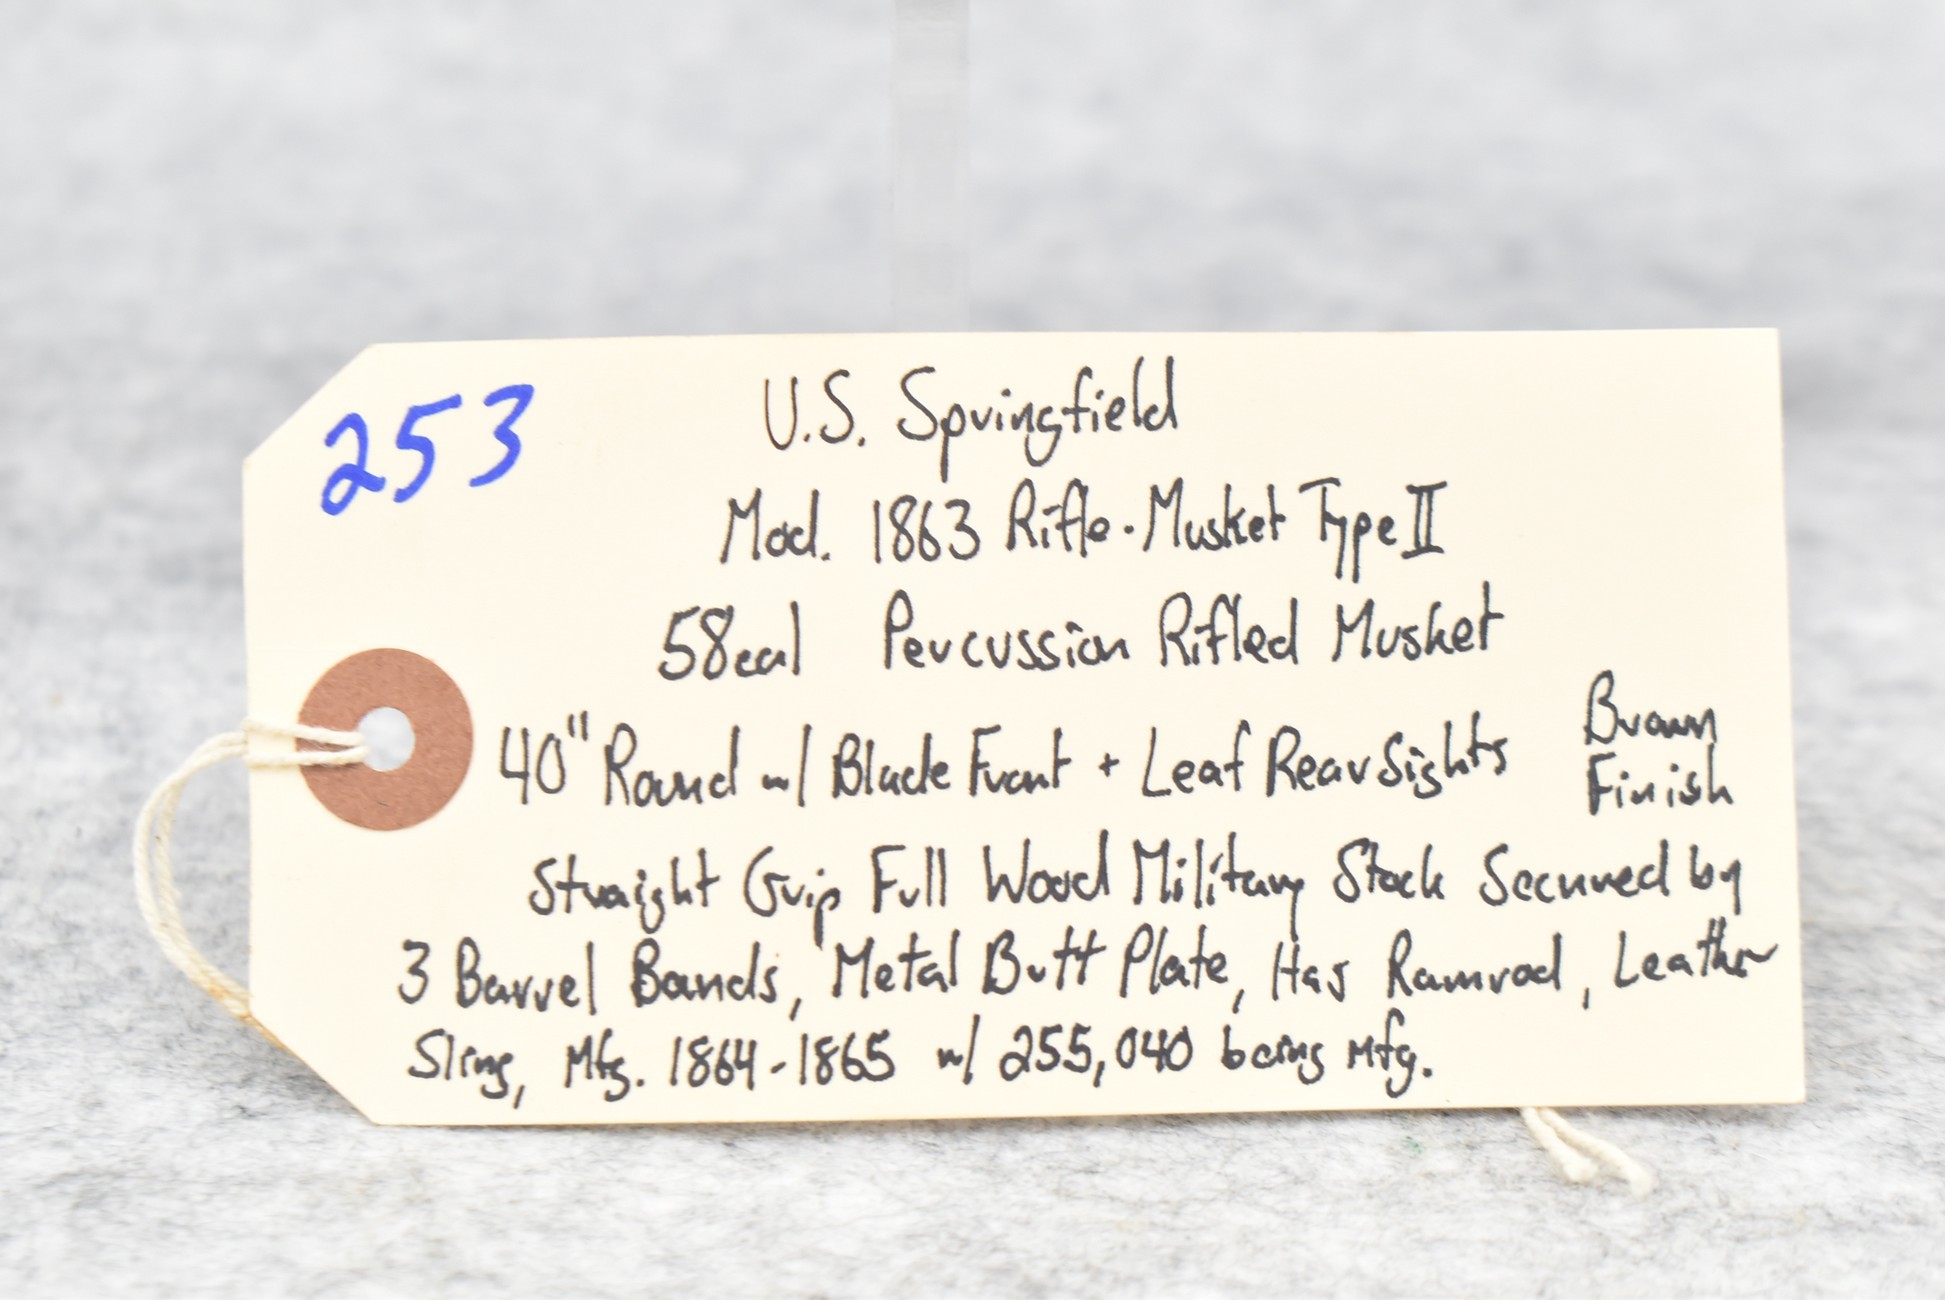 253
U.S. Springfield
Mod. 1863 Rifle-Musket Type II
58cal Percussion Rifled Musket
40" Round w/ Blade Front + Leaf Rear Sights
Brown
Finish
Straight Grip Full Wood Military Stock Secured by
3 Barrel Bands, Metal Butt Plate, Has Ramrod, Leather
Sling, Mfg. 1864-1865 w/ 255,040 being mfg.